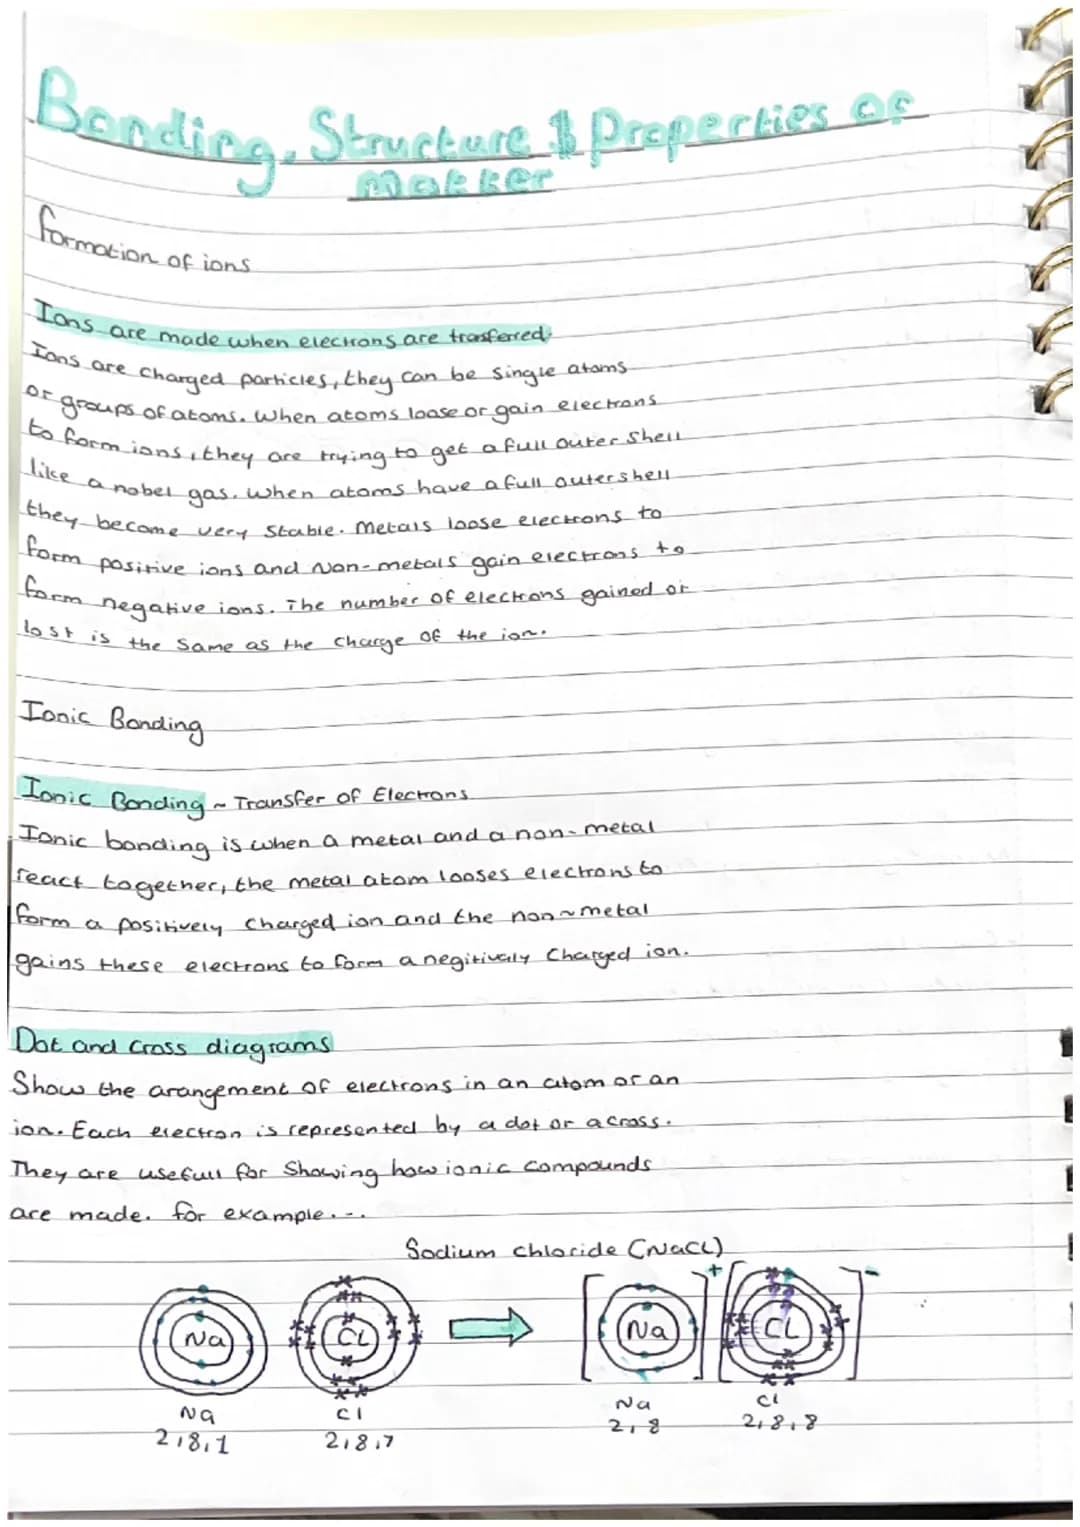 Bonding, Structure & Properties of
matter
formation of ions
Ions are made when electrons are transferred.
Ions are charged particles, they can be single atoms
or groups of atoms. When atoms loose or gain electrons
to form ions, they are trying to get a full outer shell
like a nobel gas. When atoms have a full outer shell
they become very stable. Metals loose electrons to
form positive ions and Non-metals gain electrons to
form negative ions. The number of electrons gained or
lost is the same as the charge of the ion.
Ionic Bonding
Ionic Bonding ~ Transfer of Electrons
Ionic bonding is when a metal and a non-metal
react together, the metal atom looses electrons to
form a positively charged ion and the non~metal
gains these electrons to form a negitivaly charged ion.
Dot and cross diagrams
Show the arangement of electrons in an atom or an
ion. Each electron is represented by a dot or a cross.
They are usefull for showing how ionic compounds
are made. for example...
Sodium chloride (NaCl)
Na Cl → [Na]+ [Cl]-
Na Cl Na Cl
2,8,1 2,8,7 2,8 2,8,8